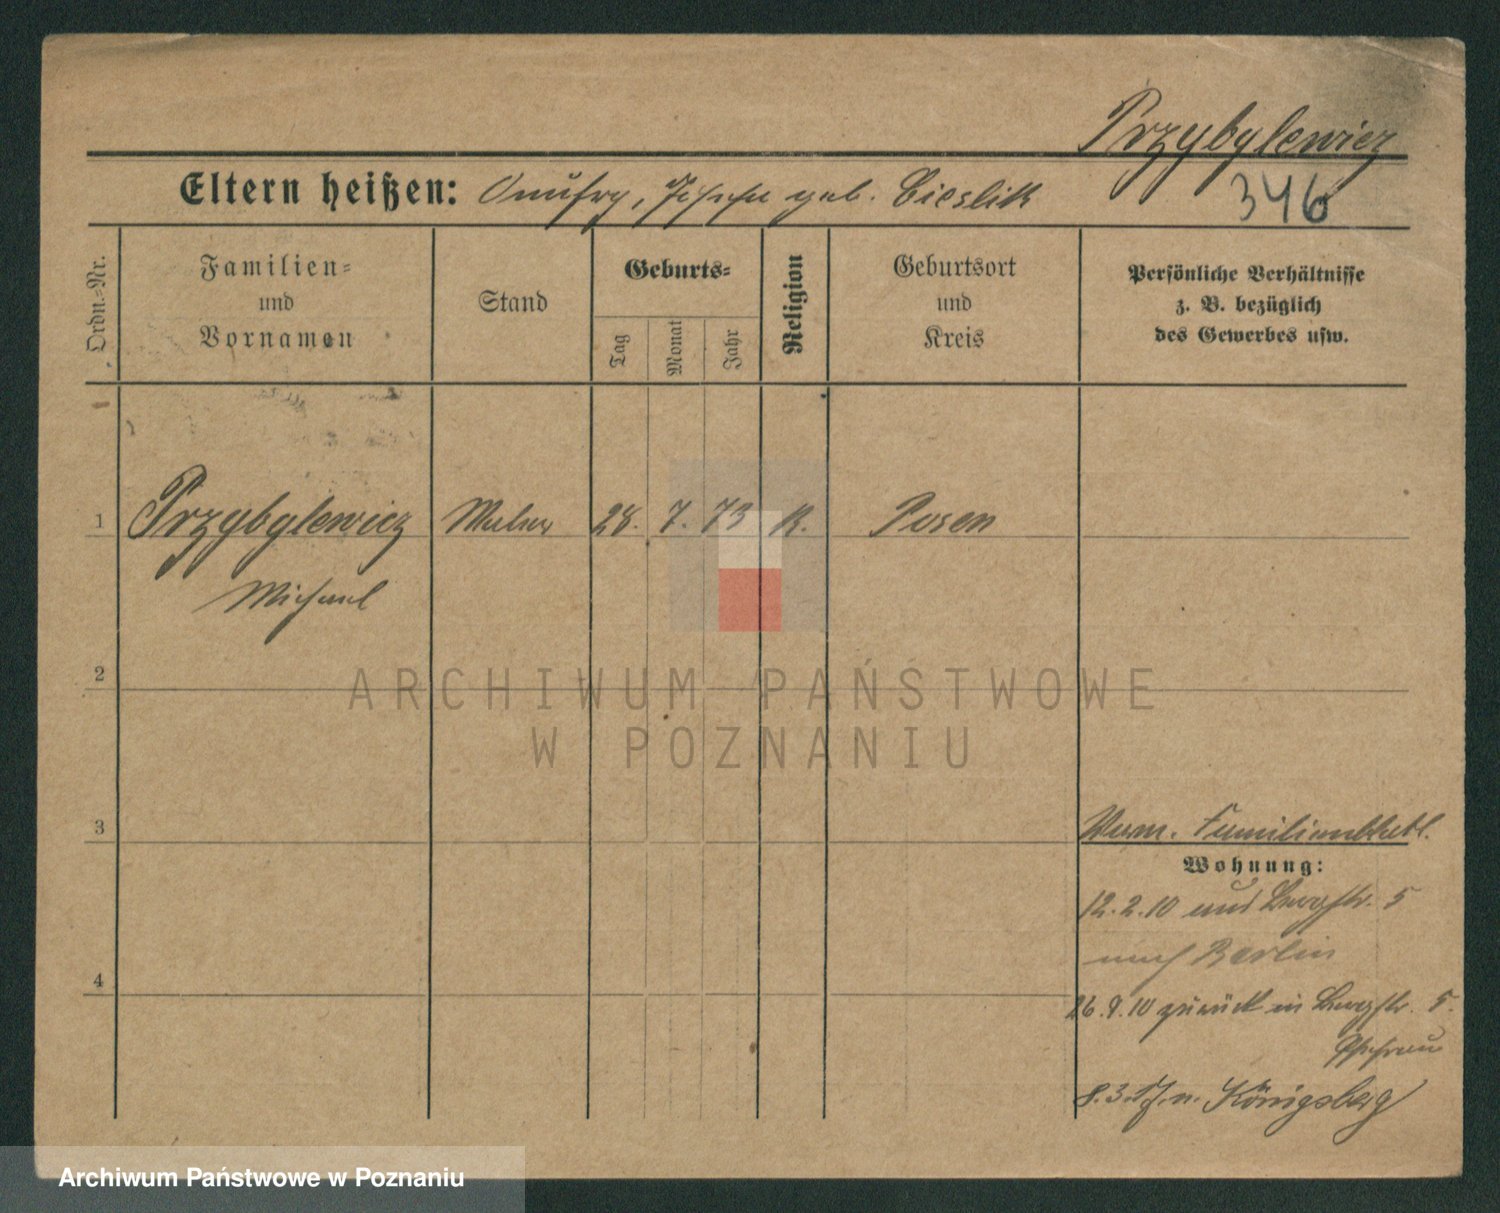 Przybylewicz
Eltern heißen: Onufry, geb. Cieslik
346
Ordn.-Nr.
Familien-
und
Vornamen
Stand
Geburts-
Tag
Monat
Jahr
Religion
Geburtsort
und
Kreis
Persönliche Verhältnisse
z. B. bezüglich
des Gewerbes usw.
1 Przybylewicz Maler 28. 7. 73 K. Posen
Michael
2
ARCHIWUM PAŃSTWOWE
W POZNANIU
3
Wohnung:
12.2.10 5
nach Berlin
4
26.9.10 zurück in 5.
Königsberg
Archiwum Państwowe w Poznaniu